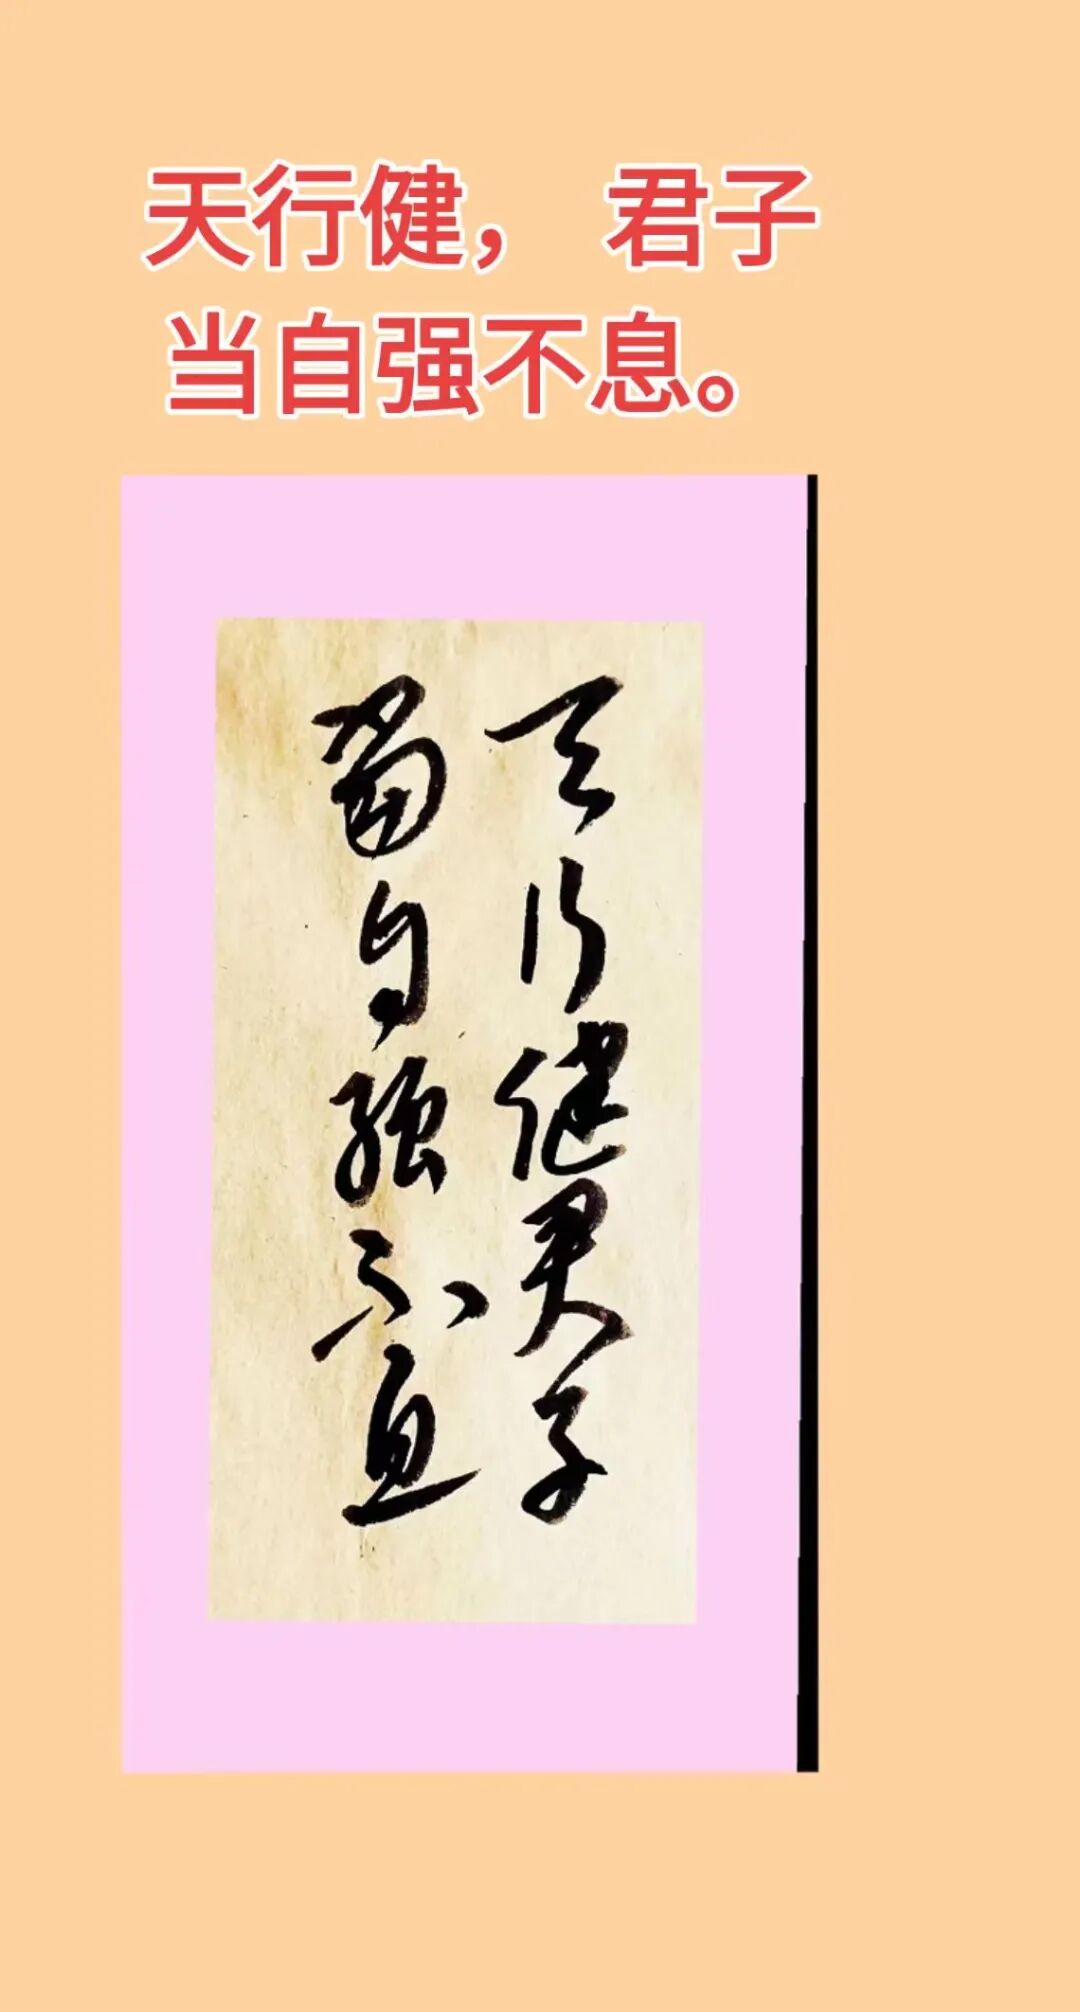 天行健， 君子
当自强不息。
天行健君子
当自强不息